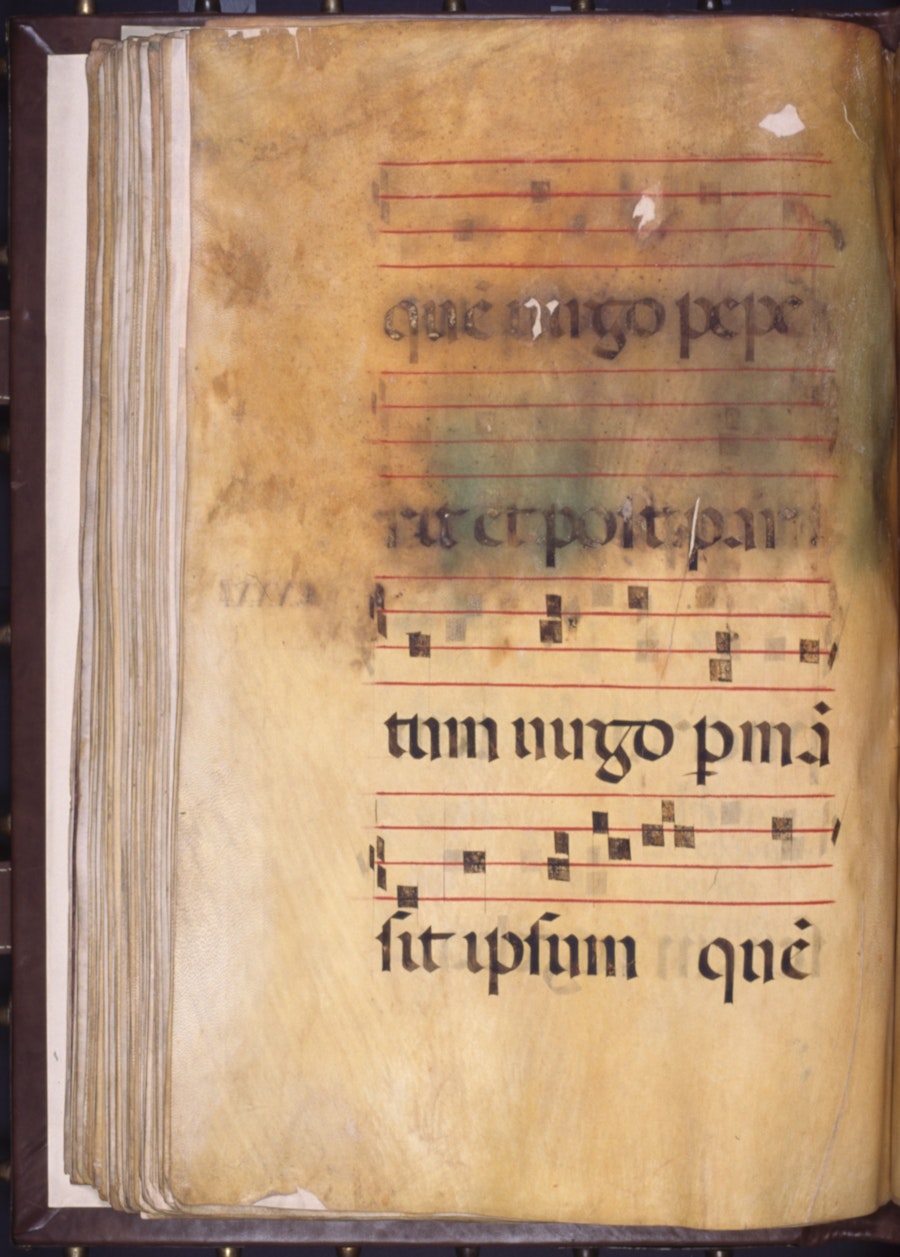 quē uirgo pepe
rit et post par
tum uirgo ꝑmāi
sit ipsum quē